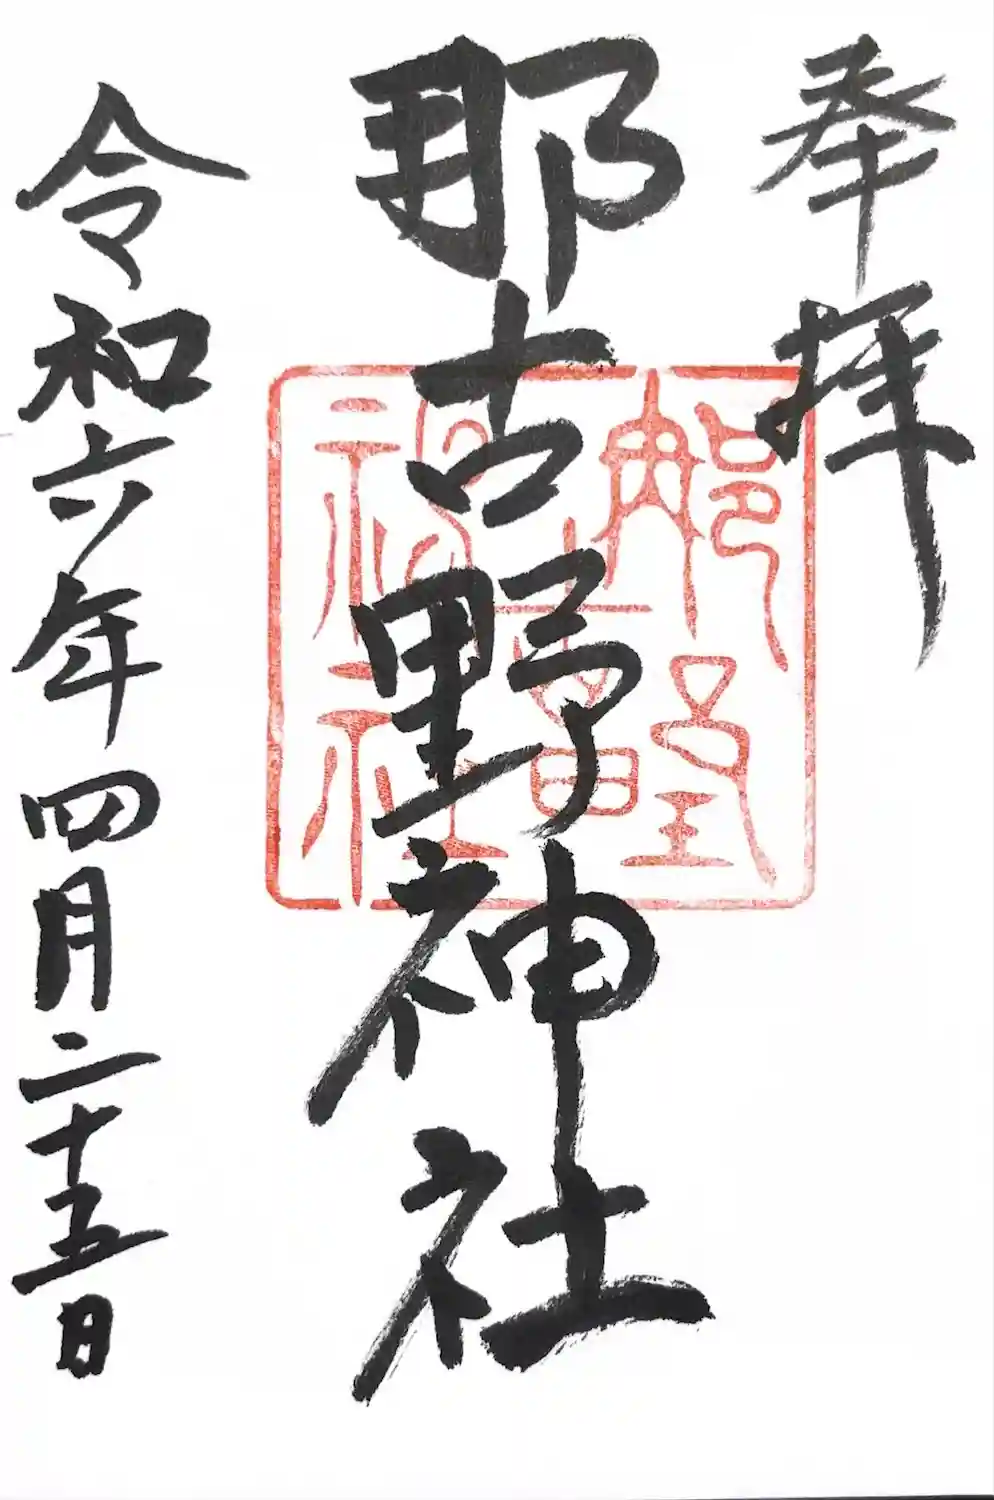 奉拝
那古野神社
令和六年四月二十五日
那古野神社